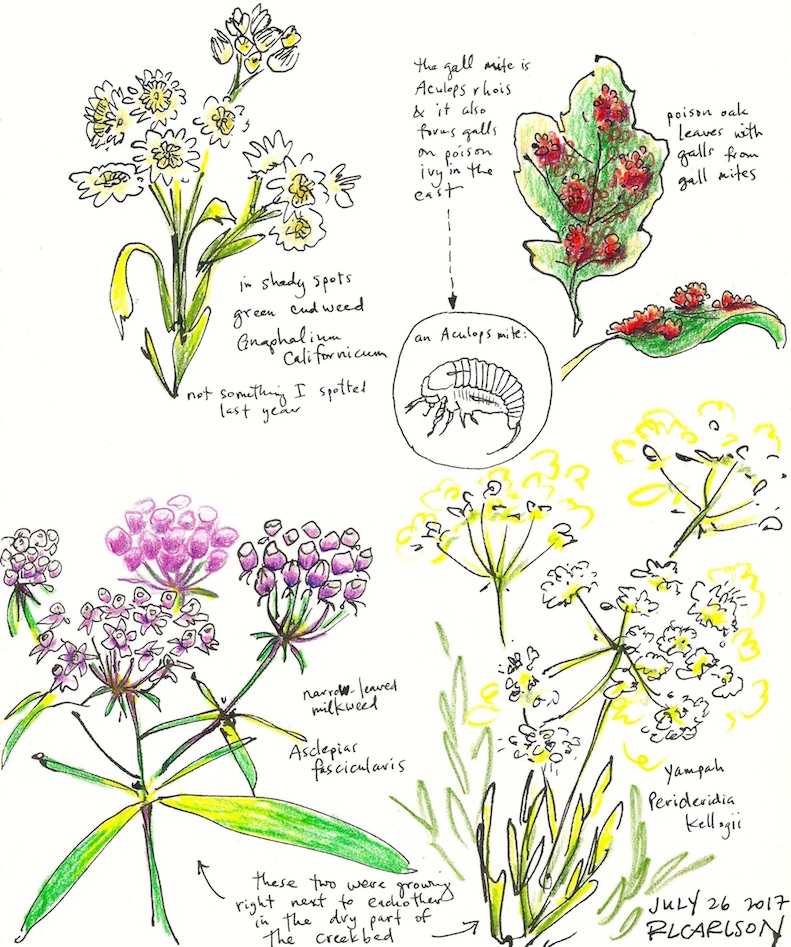 the gall mite is
Aculops rhois
& it also
forms galls
on poison
ivy in the
east
poison oak
leaves with
galls from
gall mites
in shady spots
green cudweed
Gnaphalium
Californicum
not something I spotted
last year
an Aculops mite:
narrow-leaved
milkweed
Asclepias
fascicularis
Yampah
Perideridia
Kellogii
these two were growing
right next to eachother
in the dry part of
the creekbed
JULY 26 2017
RLCARLSON